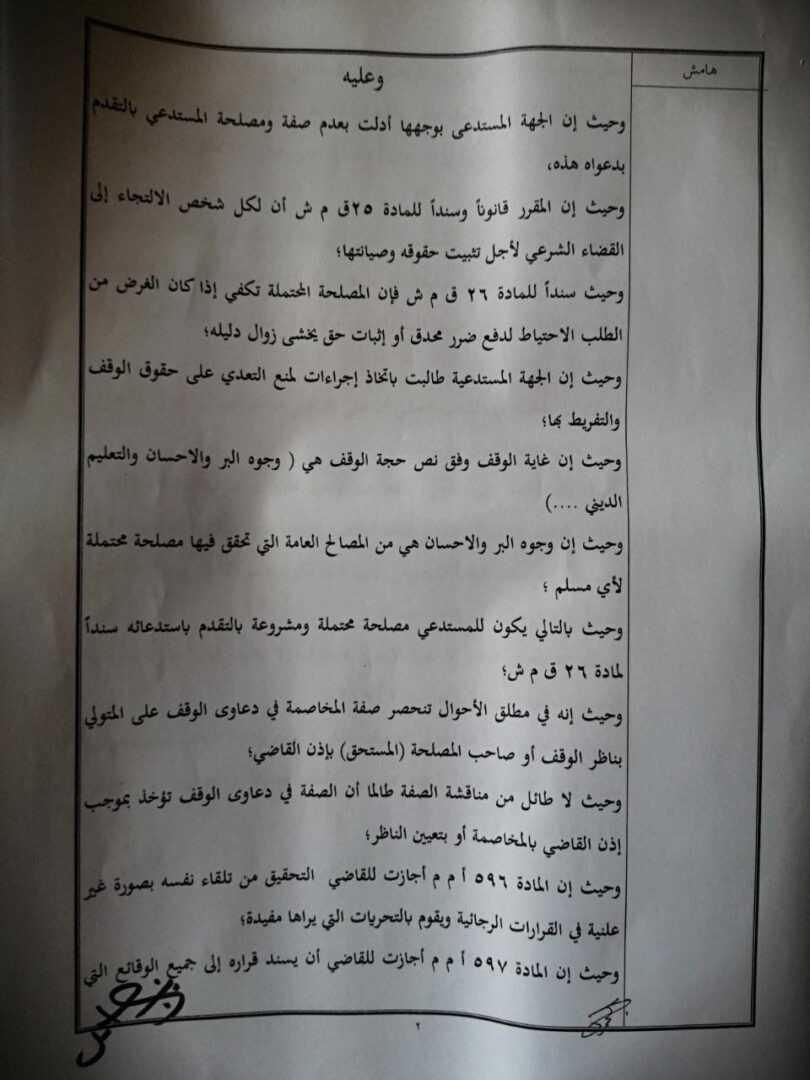 هامش
وعليه
وحيث إن الجهة المستدعى بوجهها أدلت بعدم صفة ومصلحة المستدعي بالتقدم
بدعواه هذه،
وحيث إن المقرر قانوناً وسنداً للمادة ٢٥ق م ش أن لكل شخص الالتجاء إلى
القضاء الشرعي لأجل تثبيت حقوقه وصيانتها؛
وحيث سنداً للمادة ٢٦ ق م ش فإن المصلحة المحتملة تكفي إذا كان الغرض من
الطلب الاحتياط لدفع ضرر محدق أو إثبات حق يخشى زوال دليله؛
وحيث إن الجهة المستدعية طالبت باتخاذ إجراءات لمنع التعدي على حقوق الوقف
والتفريط بها؛
وحيث إن غاية الوقف وفق نص حجة الوقف هي ( وجوه البر والاحسان والتعليم
الديني ....)
وحيث إن وجوه البر والاحسان هي من المصالح العامة التي تحقق فيها مصلحة محتملة
لأي مسلم ؛
وحيث بالتالي يكون للمستدعي مصلحة محتملة ومشروعة بالتقدم باستدعائه سنداً
لمادة ٢٦ ق م ش؛
وحيث إنه في مطلق الأحوال تنحصر صفة المخاصمة في دعاوى الوقف على المتولي
بناظر الوقف أو صاحب المصلحة (المستحق) بإذن القاضي؛
وحيث لا طائل من مناقشة الصفة طالما أن الصفة في دعاوى الوقف تؤخذ بموجب
إذن القاضي بالمخاصمة أو بتعيين الناظر؛
وحيث إن المادة ٥٩٦ أ م م أجازت للقاضي التحقيق من تلقاء نفسه بصورة غير
علنية في القرارات الرجائية ويقوم بالتحريات التي يراها مفيدة؛
وحيث إن المادة ٥٩٧ أ م م أجازت للقاضي أن يسند قراره إلى جميع الوقائع التي
٢